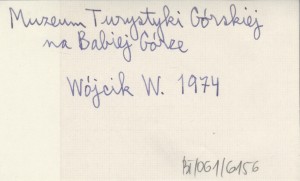 Muzeum Turystyki Górskiej
na Babiej Górze
Wójcik W. 1974
/061/6156